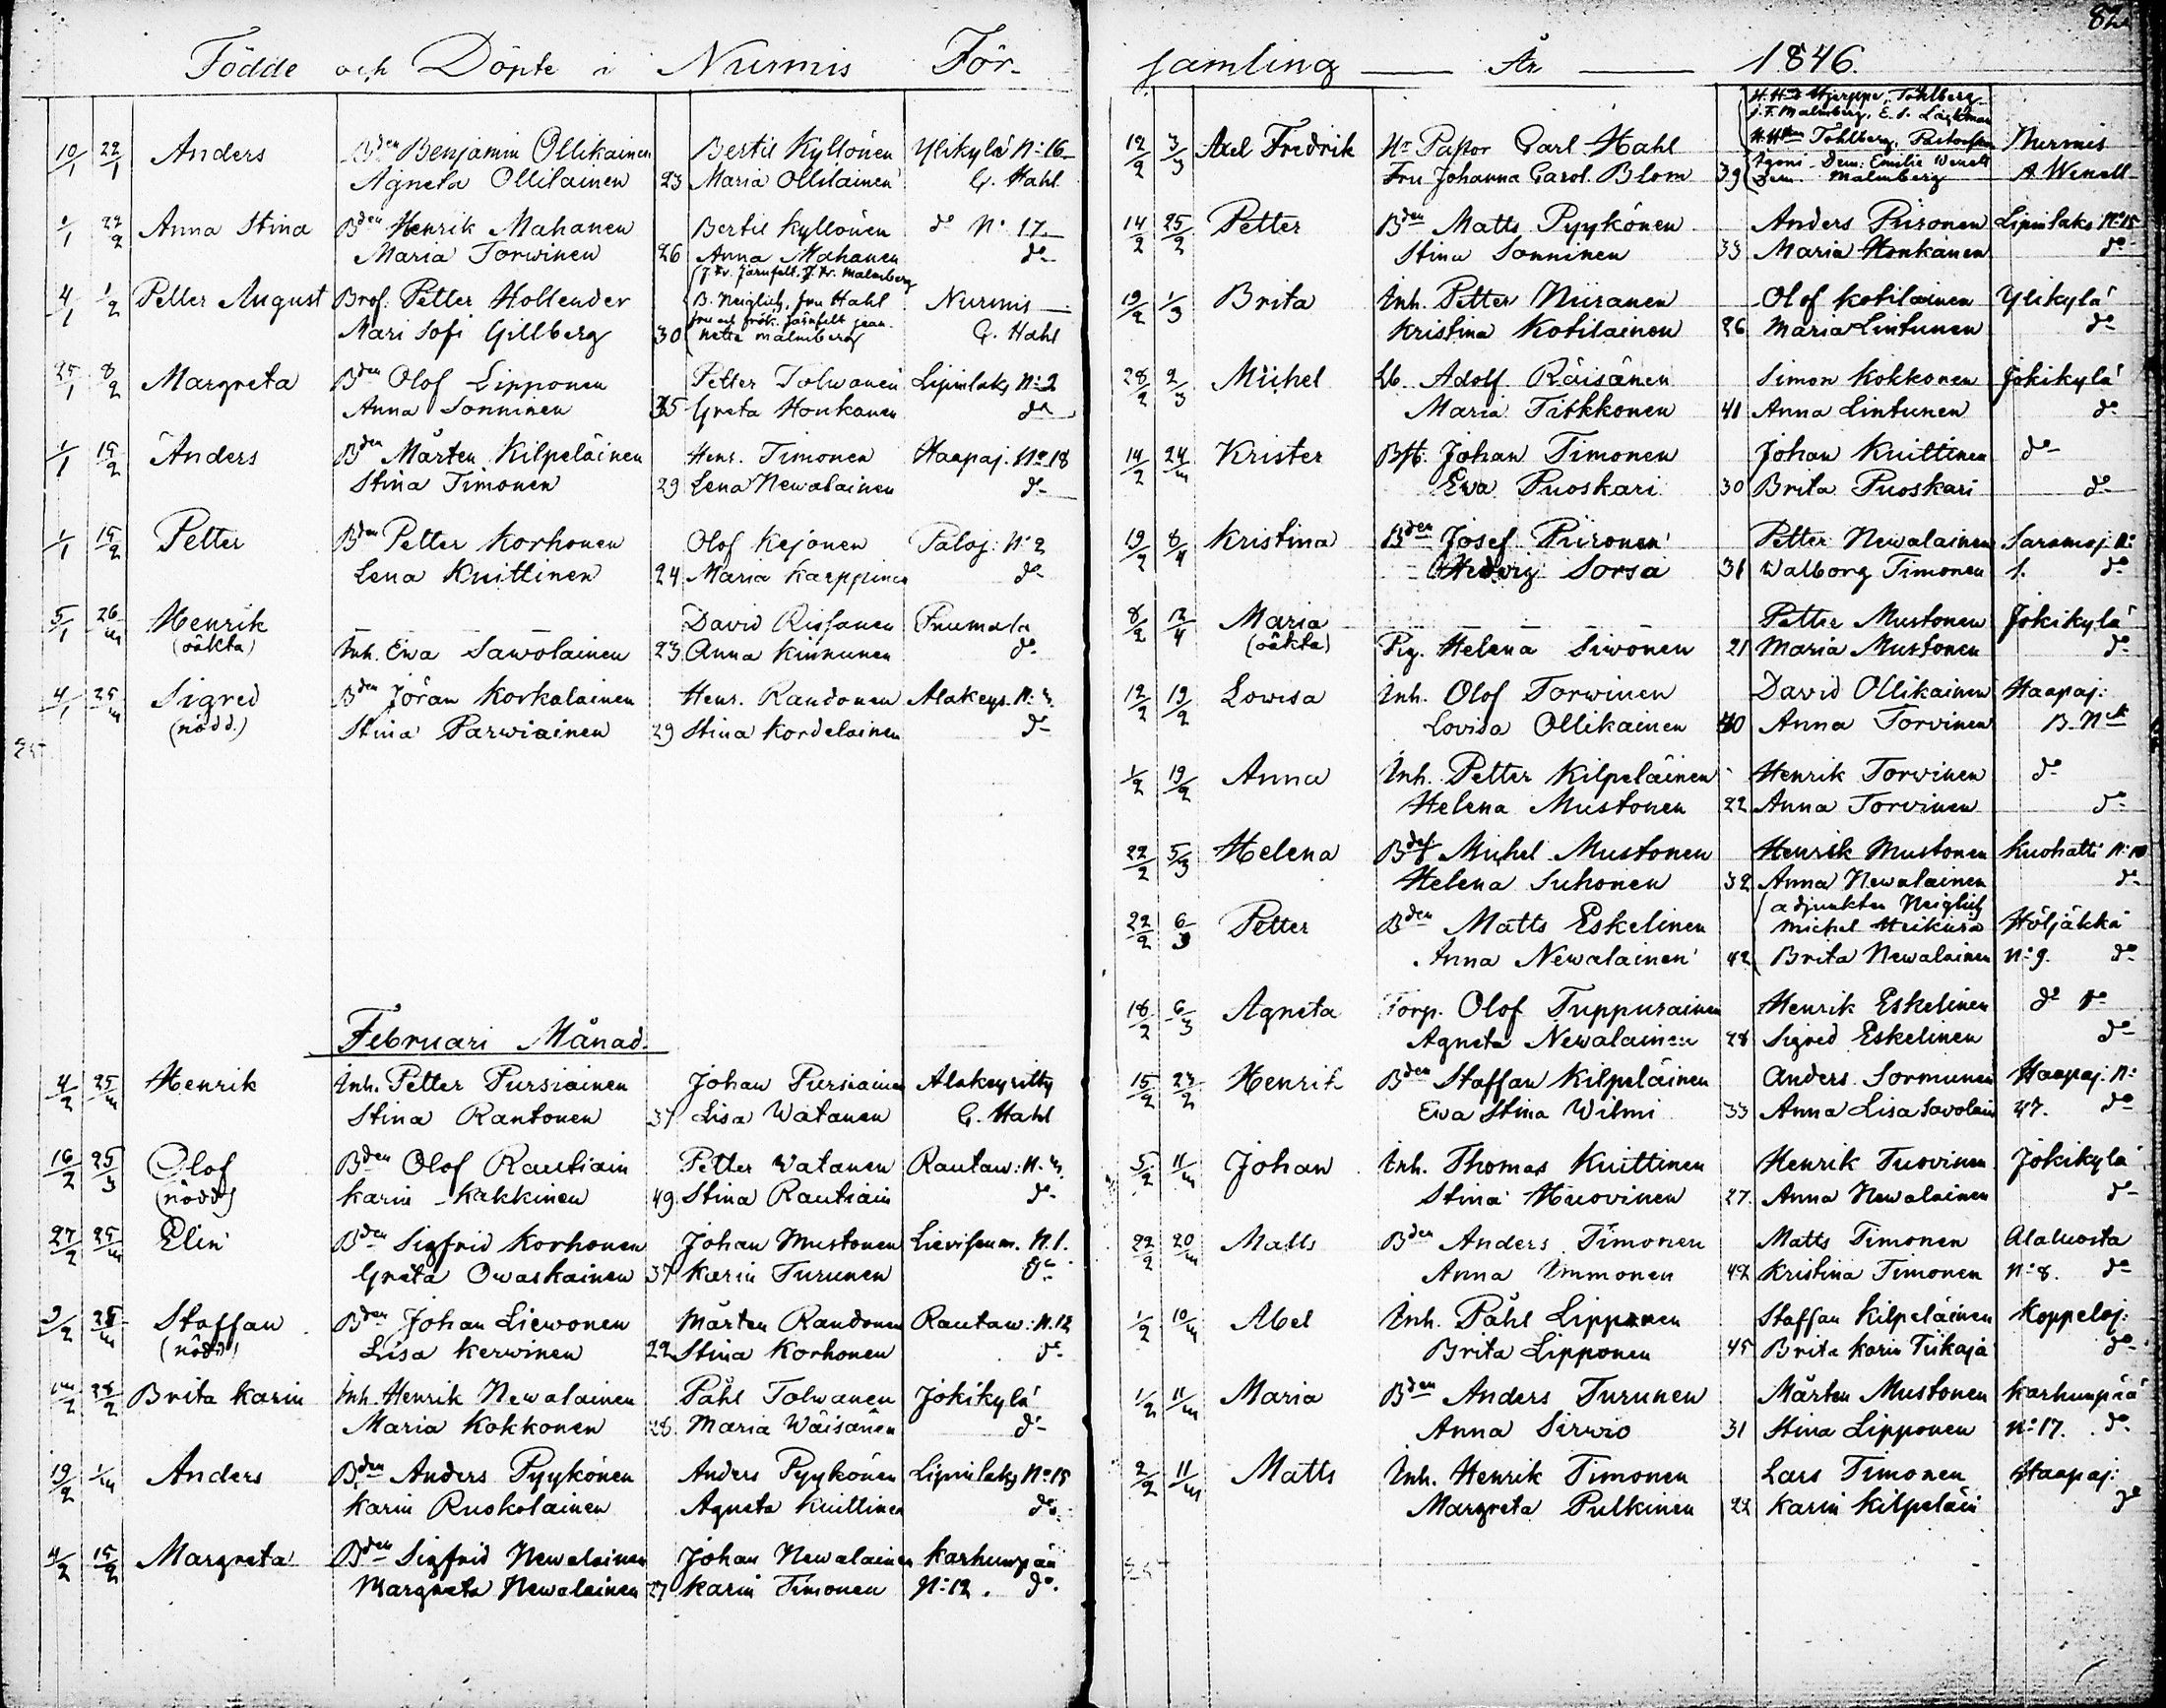 82
Födde och Döpte i Nurmis För-
10/1 22/1 Anders Bden Benjamin Ollikainen Bertil Kyllönen Ylikylä No: 16
Agneta Ollikainen 23 Maria Ollikainen C. Hahl
1/1 22/2 Anna Stina Bden Henrik Mahanen Bertil Kyllönen do No 17
Maria Torwinen 26 Anna Mahanen do
J. Fr. Järnfelt. J. Fr. Malmberg
4/1 1/2 Petter August Brof. Petter Hollender B. Neiglick, fru Hahl Nurmis
fru och frök: Järnfelt jean.
Mari Sofi Gillberg 30 nette Malmberg C. Hahl
25/1 8/2 Margreta Bden Olof Lipponen Petter Tolwanen Lipinlaks No: 2
Anna Sonninen 35 Greta Honkanen do
1/1 15/2 Anders Bden Mårten Kilpeläinen Henr. Timonen Haapaj. No 18
Stina Timonen 29 Lena Newalainen do
1/1 15/2 Petter Bden Petter Korhonen Olof Kejonen Paloj: No 2
Lena Kuittinen 24 Maria Karppinen do
5/1 26/m Henrik David Rissanen Puumala
(oäkta) Inh. Ewa Sawolainen 23 Anna Kinnunen do
4/1 25/m Sigred Bden Jöran Korkalainen Henr. Randonen Alakeyr. N:
(nödd.) Stina Parwiainen 29 Stina Kordelainen do
Februari Månad
4/2 25/m Henrik Inh. Petter Pursiainen Johan Pursiainen Alakeyritty
Stina Rantonen 37 Lisa Watanen C. Hahl
16/2 25/3 Olof Bden Olof Rautiain Petter Watanen Rautaw: N.
(nödd) Karin Kakkinen 49 Stina Rautiain do
27/2 25/m Elin Bden Sigfrid Korhonen Johan Mustonen N. 1.
Greta Owaskainen 37 Karin Turunen do
3/2 25/m Staffan Bden Johan Liewonen Mårten Randonen Rautaw: N. 12
(nödd) Lisa Kerwinen 22 Stina Korhonen do
28/2 Brita Karin Inh. Henrik Newalainen Påhl Tolwanen Jokikylä
Maria Kokkonen 28 Maria Wäisänen do
19/2 1/m Anders Bden Anders Pyykönen Anders Pyykönen Lipinlaks No 15
Karin Ruokolainen Agneta Kuittinen do
4/2 15/2 Margreta Bden Sigfrid Newalainen Johan Newalainen Karhunpää
Margreta Newalainen 27 Karin Timonen No: 12. do
samling År 1846.
H. Hrr Hjerppe, Tohlberg
J. F. Malmberg, E. J. Lackman
12/2 3/3 Axel Fredrik Hr Pastor Carl Hahl Tohlberg, Nurmis
Dem: Emilie Wenell
Fru Johanna Carol. Blom 39 Dem. Malmberg A Wenell
14/2 25/2 Petter Bden Matts Pyykönen Anders Piironen Lipinlaks No 15
Stina Sonninen 33 Maria Honkanen do
19/2 1/3 Brita Inh. Petter Niiranen Olof Kotilainen Ylikylä
Kristina Kotilainen 26 Maria Lintunen do
28/2 2/3 Michel Lb. Adolf Räisänen Simon Kokkonen Jokikylä
Maria Tätkkonen 41 Anna Lintunen do
14/2 24/m Krister Bst. Johan Timonen Johan Kuittinen do
Ewa Puoskari 30 Brita Puoskari do
19/2 8/4 Kristina Bden Josef Piironen Petter Newalainen Saramoj. N:
Hedvig Sorsa 31 Walborg Timonen 1. do
8/2 12/4 Maria Petter Mustonen Jokikylä
(oäkta) Pig. Helena Siwonen 21 Maria Mustonen do
12/2 19/2 Lowisa Inh. Olof Torwinen David Ollikainen Haapaj:
Lovisa Ollikainen 40 Anna Torvinen B. Nck
1/2 19/2 Anna Inh. Petter Kilpeläinen Henrik Torvinen do
Helena Mustonen 22 Anna Torvinen do
22/2 5/3 Helena Bden Michel Mustonen Henrik Mustonen Kuohatti N: 10
Helena Suhonen 32 Anna Newalainen do
adjunkten Neiglick
22/2 6/3 Petter Bden Matts Eskelinen Michel Heikura Höljäkkä
Anna Newalainen 42 Brita Newalainen No: 9. do
18/2 6/3 Agneta Torp. Olof Tuppurainen Henrik Eskelinen do do
Agneta Newalainen 28 Sigred Eskelinen do
15/2 23/2 Henrik Bden Staffan Kilpeläinen Anders Sormunen Haapaj. N:
Ewa Stina Wilmi 33 Anna Lisa Savolain 47. do
5/2 11/m Johan Inh. Thomas Kuittinen Henrik Tuovinen Jokikylä
Stina Huovinen 27 Anna Newalainen do
22/2 20/m Matts Bden Anders Timonen Matts Timonen Alaluosta
Anna Immonen 42 Kristina Timonen No: 8. do
1/2 10/m Abel Inh. Påhl Lipponen Staffan Kilpeläinen Koppeloj:
Brita Lipponen 45 Brita Karin Tiikaja do
1/2 11/m Maria Bden Anders Turunen Mårten Mustonen Karhunpää
Anna Sirwio 31 Stina Lipponen No: 17. do
2/2 11/m Matts Inh. Henrik Timonen Lars Timonen Haapaj:
Margreta Pulkinen 22 Karin Kilpeläin do